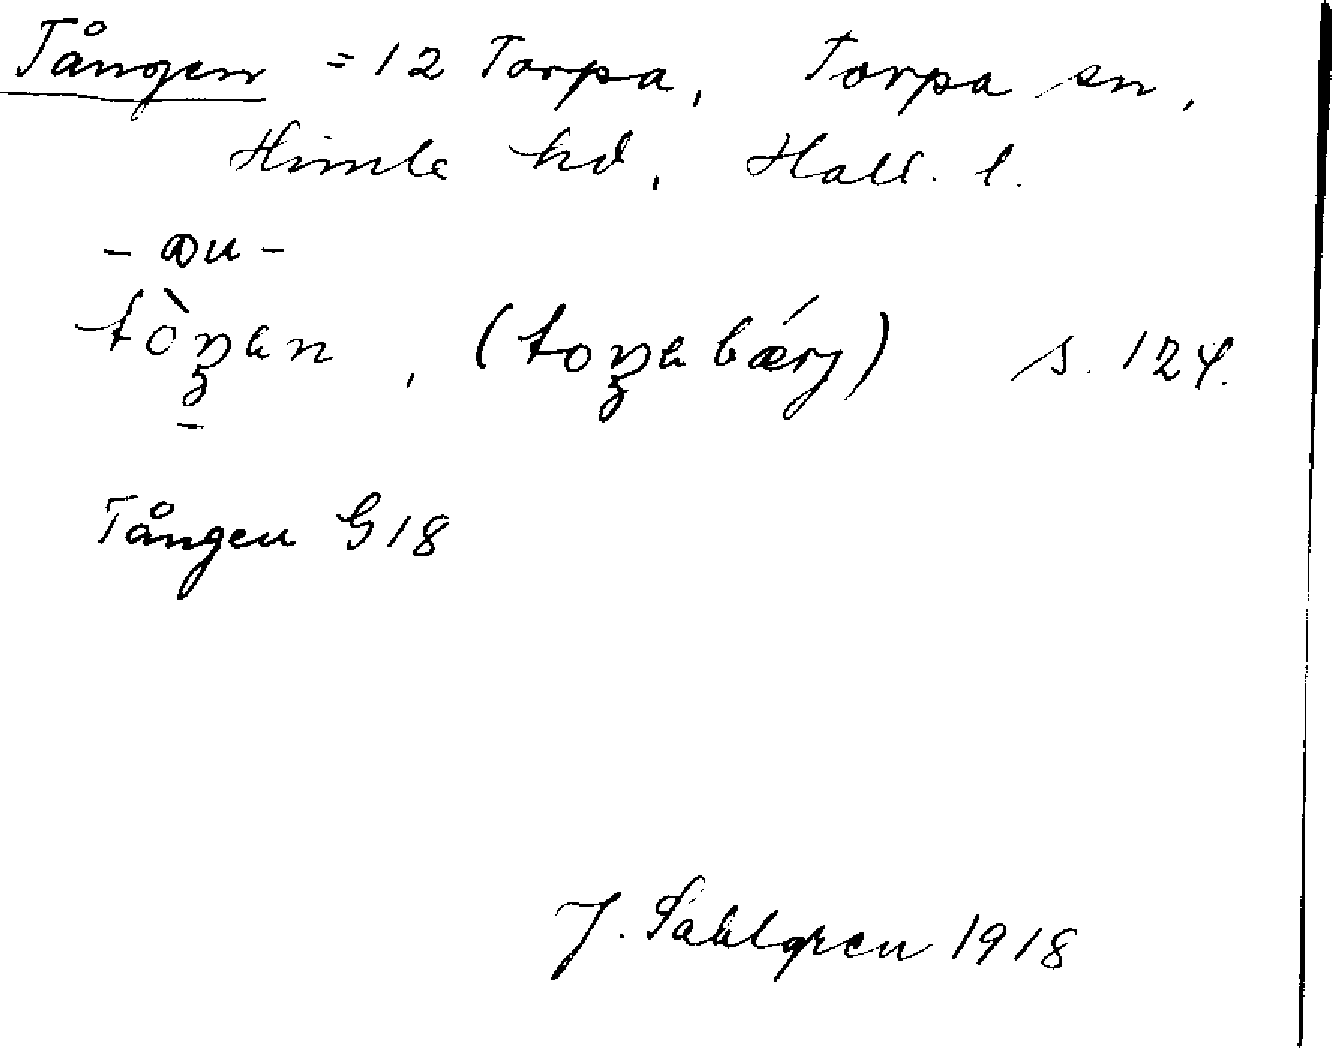 Tången = 12 Torpa, Torpa sn,
Himle hd, Hall. l.
s. 124.
Tången G18
J. Sahlgren 1918